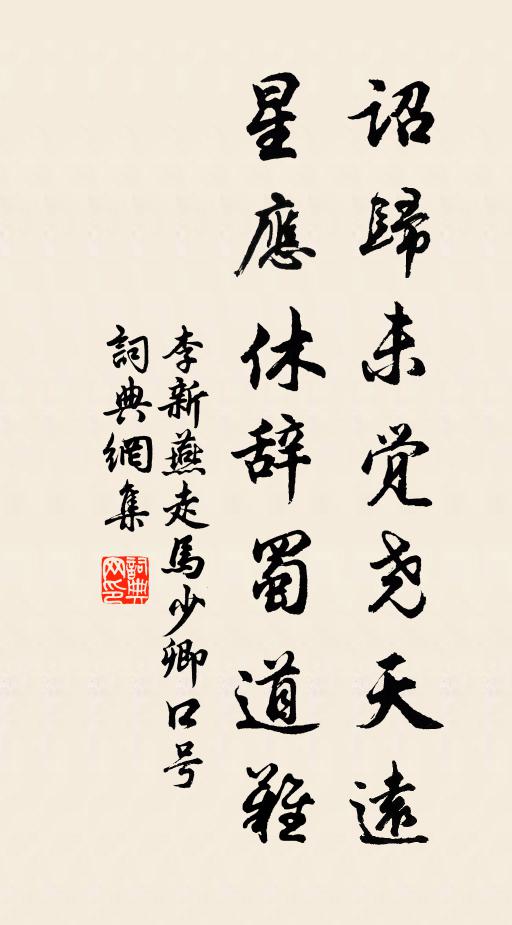 詔歸未覚尧天遠
星應休辞蜀道難
李新燕走馬少卿口号
詞典網集
詞典网印